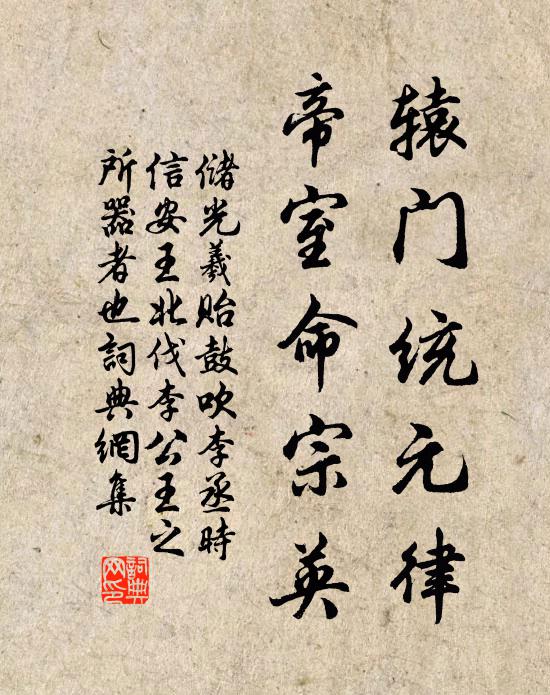 辕门统元律
帝室命宗英
储光羲贻鼓吹李丞时
信安王北伐李公王之
所器者也詞典網集
詞典
网印